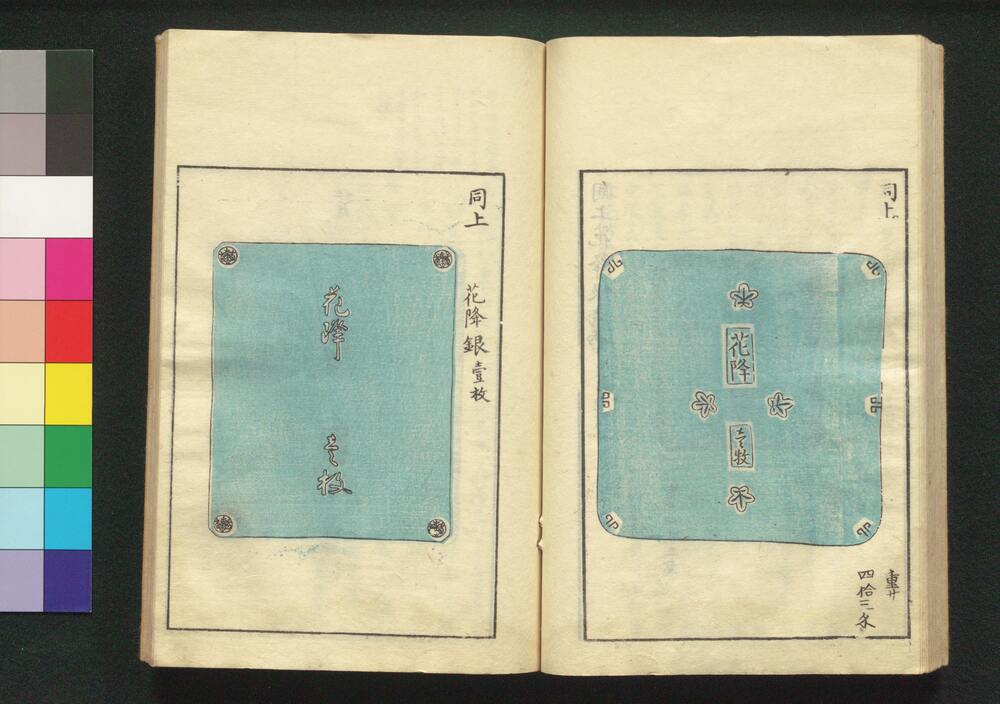 同上
花降
壱枚
重サ
四拾三匁
同上
花降銀壹枚
花降
壱枚